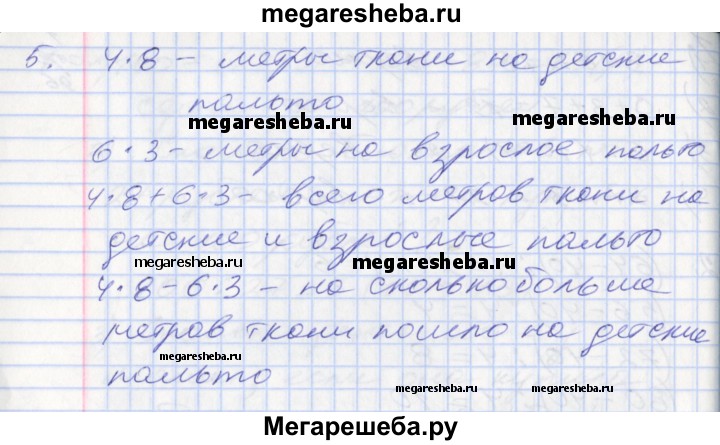 megaresheba.ru
5. 4·8 – метры ткани на детские
пальто
megaresheba.ru
megaresheba.ru
6·3 – метры на взрослое пальто
4·8+6·3 – всего метров ткани на
детские и взрослые пальто
megaresheba.ru
megaresheba.ru
4·8–6·3 – на сколько больше
метров ткани пошло на детские
megaresheba.ru
пальто
megaresheba.ru
megaresheba.ru
Мегарешеба.ру